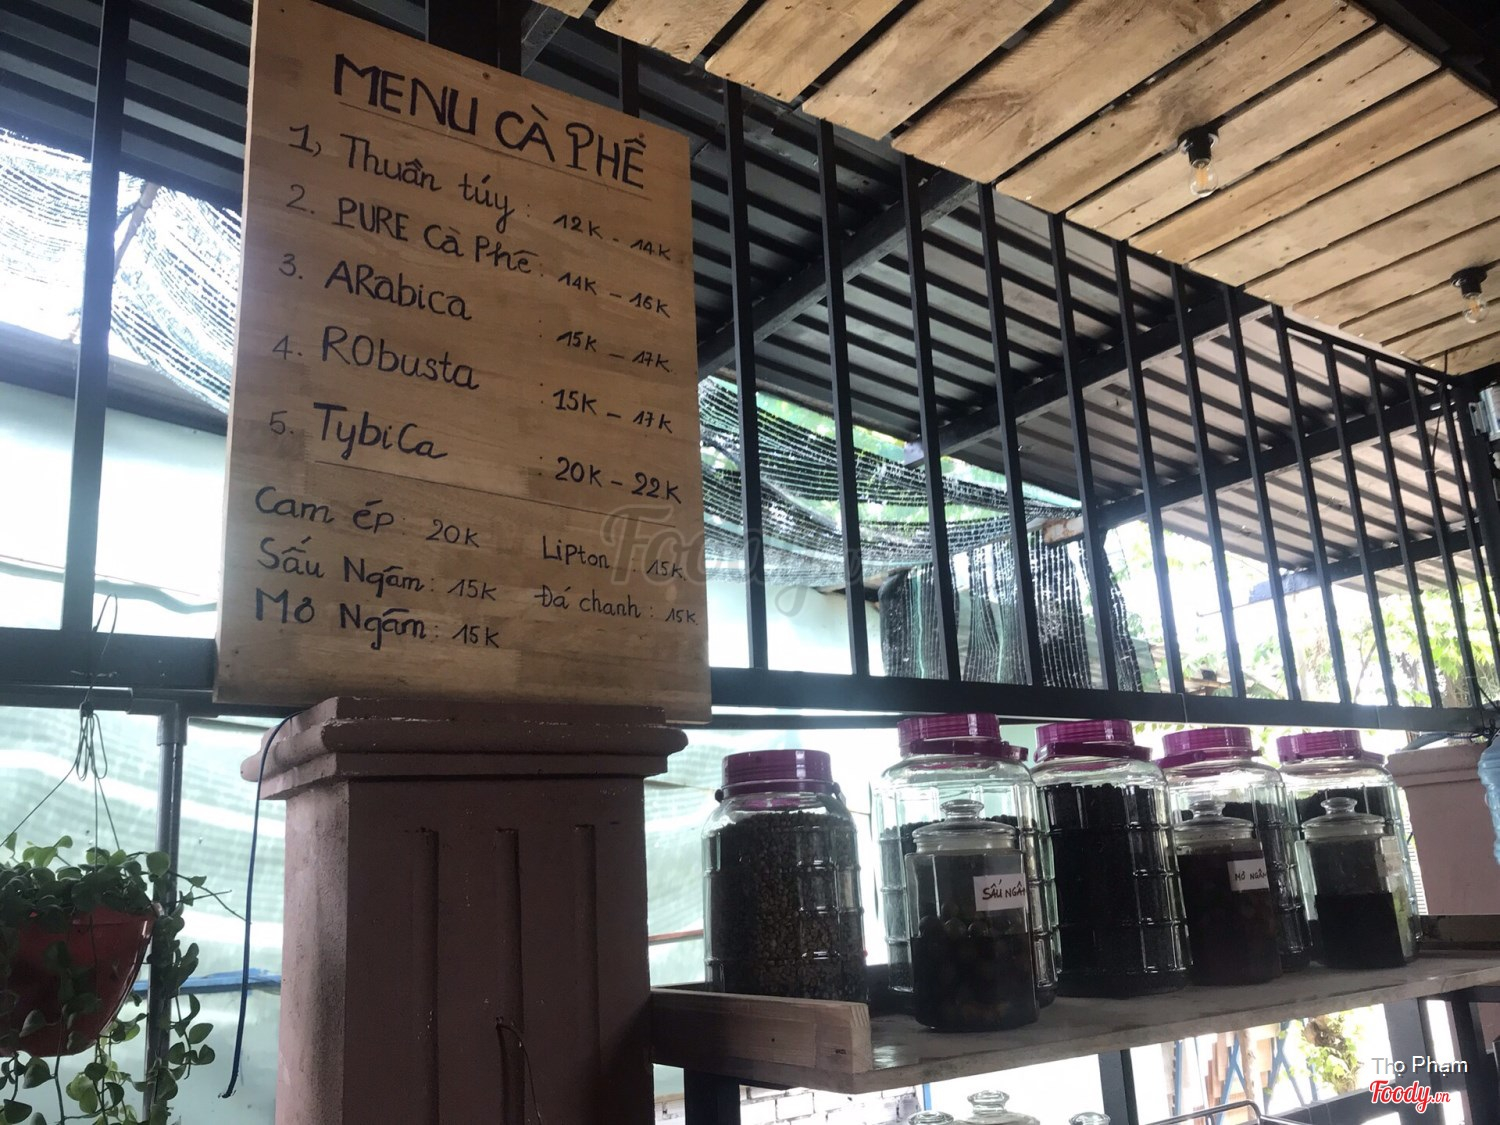 MENU CÀ PHÊ
1, Thuần túy : 12K - 14K
2. PURE Cà Phê : 14K - 16K
3. ARabica : 15K - 17K
4. RObusta : 15K - 17K
5. TybiCa : 20K - 22K
Cam ép : 20K Lipton : 15K
Sấu Ngâm : 15K Đá chanh : 15K
Mơ Ngâm : 15K
Foody.vn
SẤU NGÂM
MƠ NGÂM
Thọ Phạm
Foody.vn